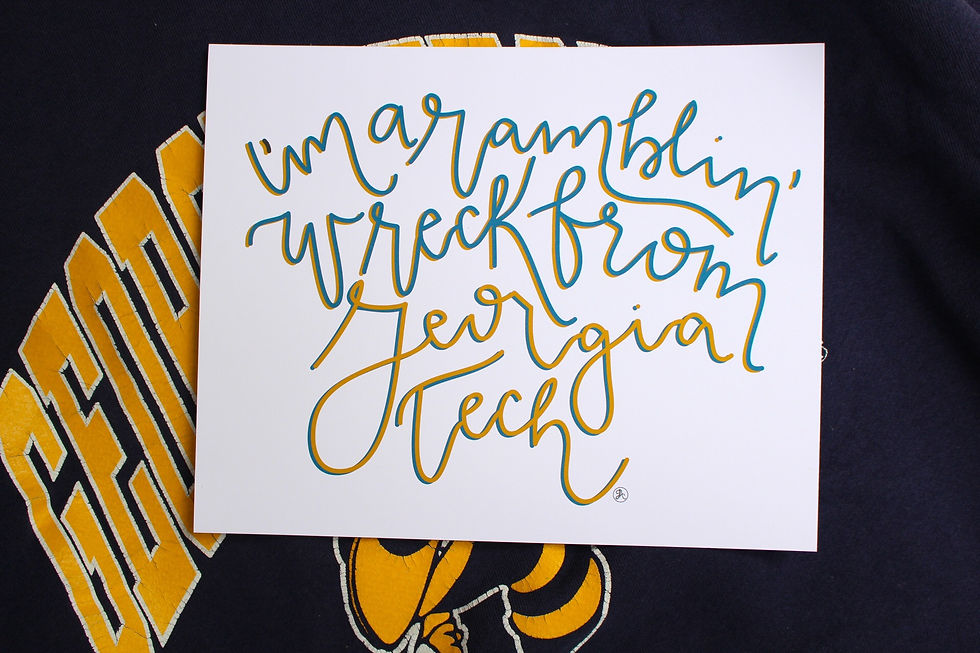 i'm a ramblin'
wreck from
georgia
tech